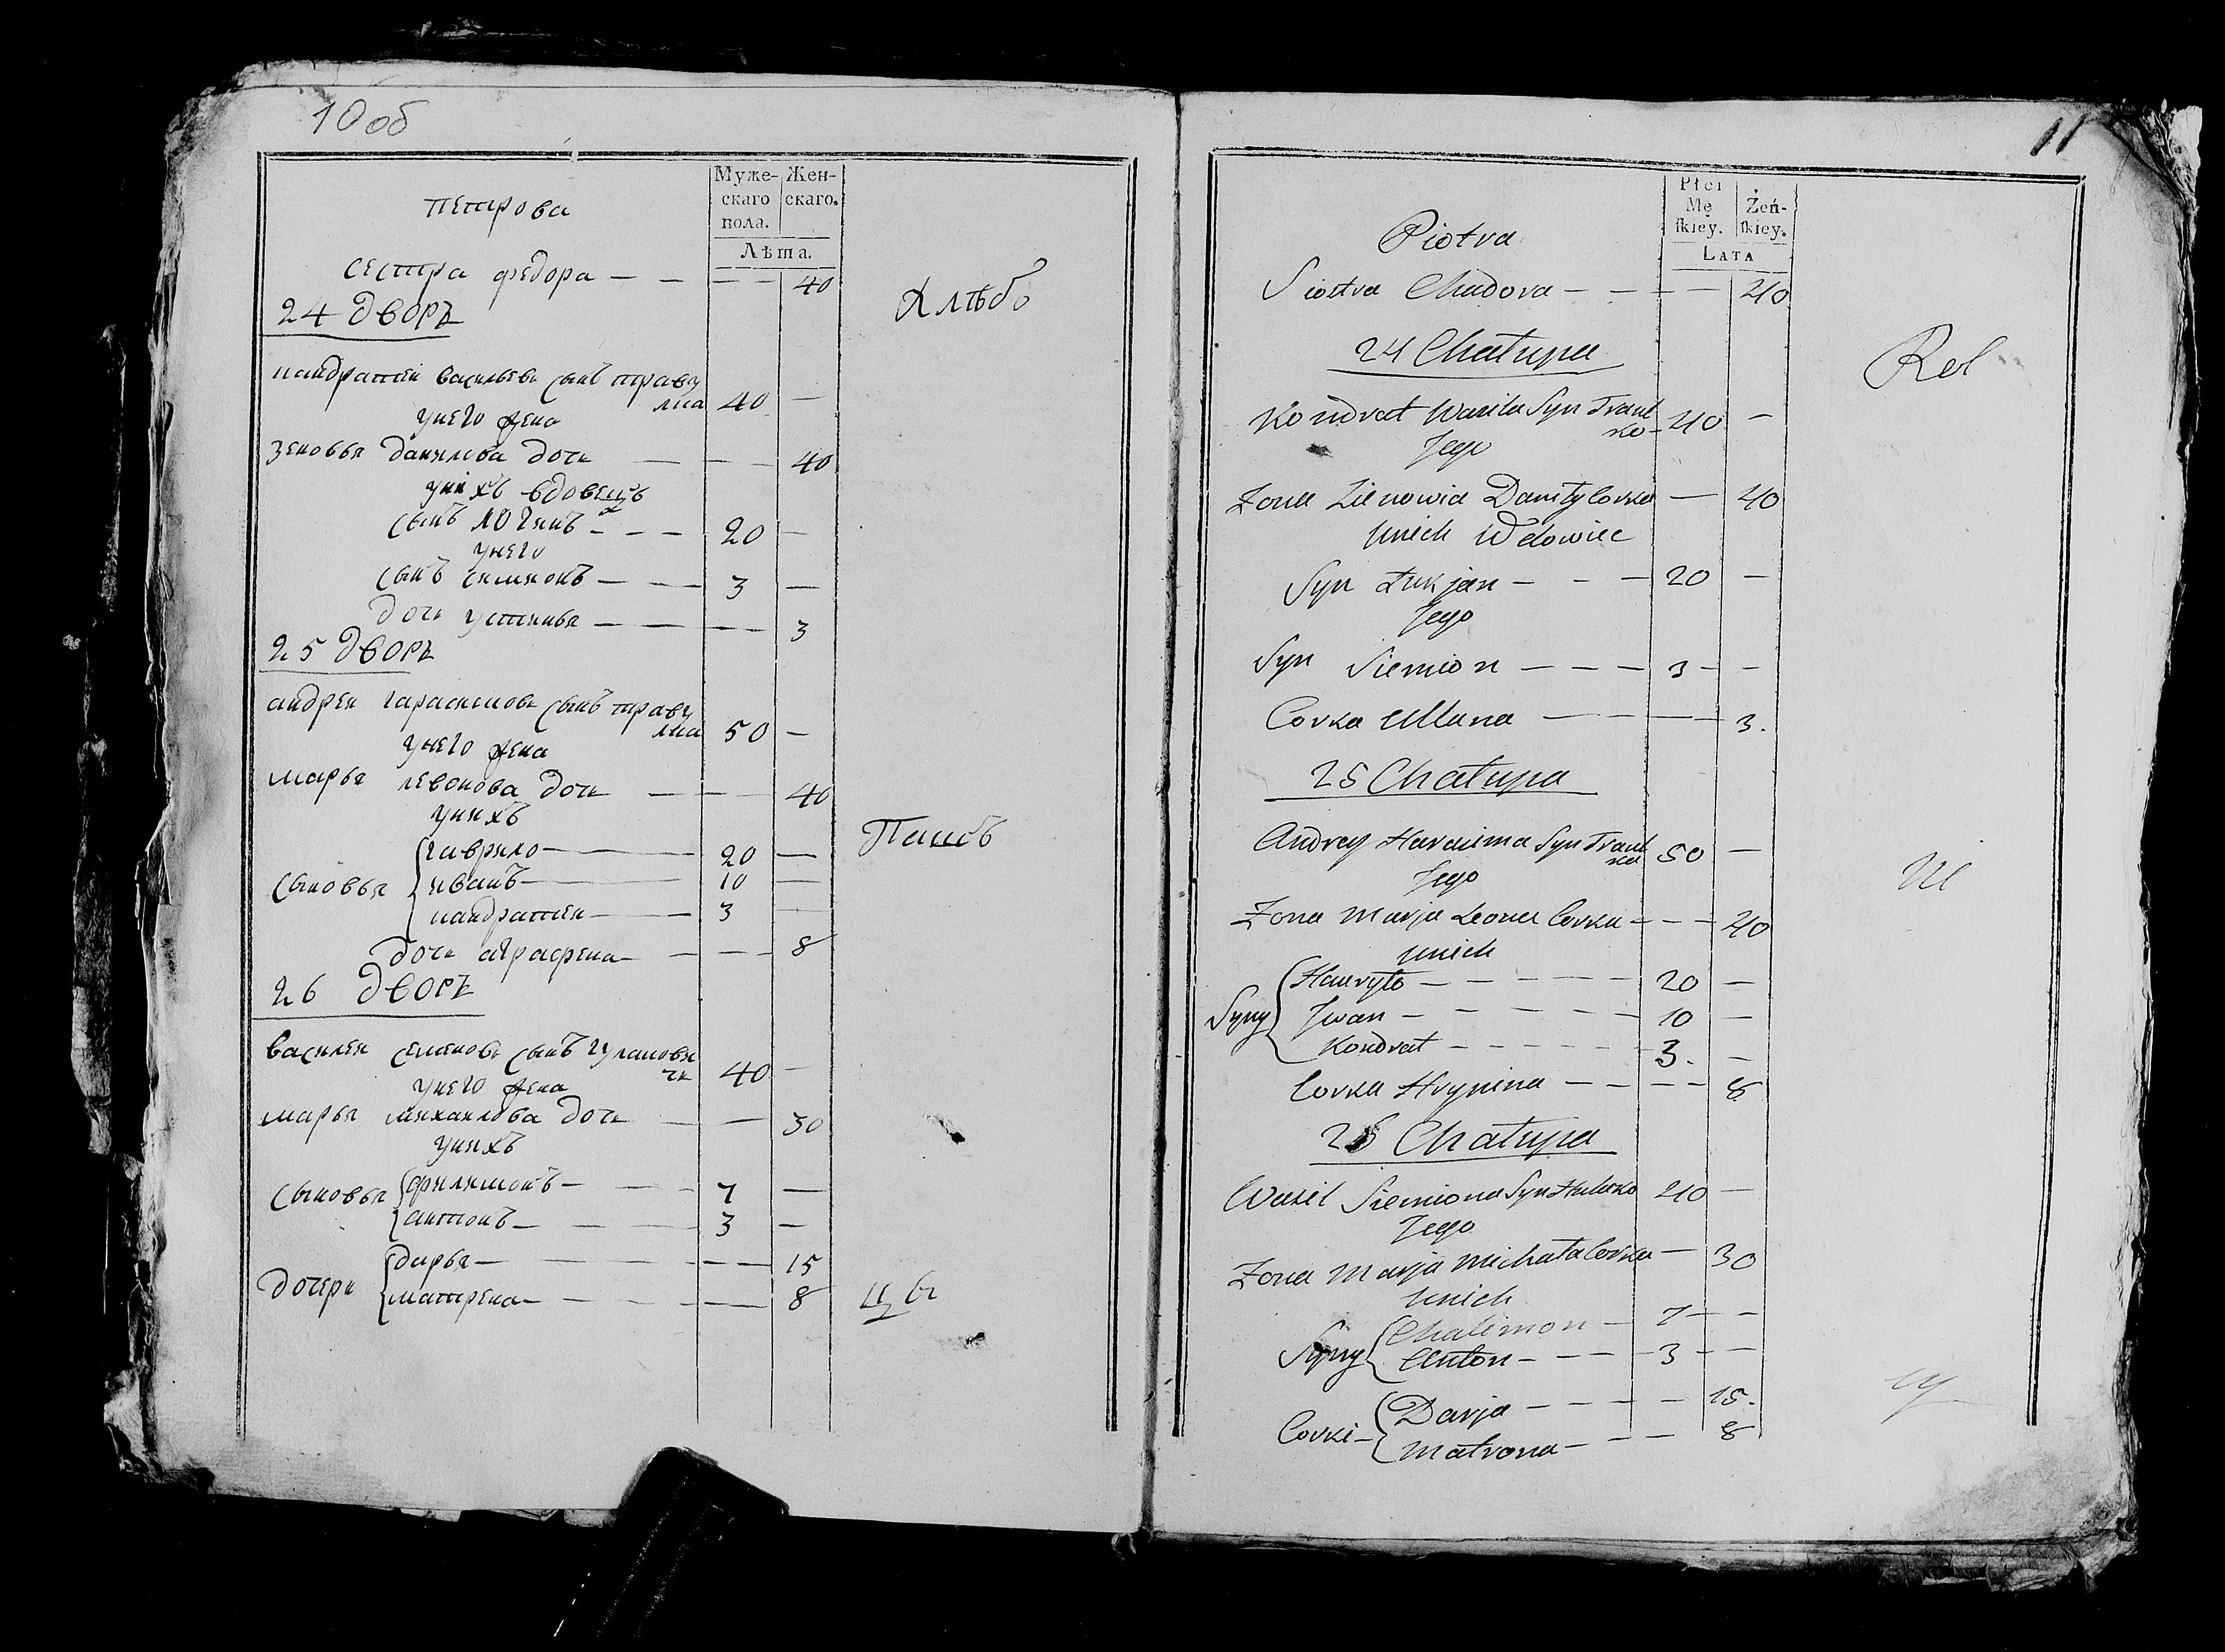 10 об
Муже-
скаго
пола.
Жен-
скаго.
Лѣта.
петрова
сестра федора — — — — 40
Хлѣбо
24 дворъ
кандратей васильевъ сынъ травъ
лка 40 —
унего жена
зеновья данилова дочь — — — 40
унихъ вдовецъ
сынъ лукянъ — — — 20 —
унего
сынъ симионъ — — — 3 —
дочь устинья — — — — 3
25 дворъ
андрей гарасимовъ сынъ траву
лка 50 —
унего жена
марья левонова дочь — — — 40
унихъ
Пашъ
сыновья
гаврило — 20 —
иванъ — 10 —
кандратей — 3 —
дочь аграфена — — — — 8
26 дворъ
василей семеновъ сынъ гулкови
чь 40 —
унего жена
марья михаилова дочь — — 30
унихъ
сыновья
филимонъ — — — 7 —
антонъ — — — 3 —
дочери
дарья — — — — — 15
матрена — — — — — 8
11
Płci
Mę
ſkiey.
Żeń-
ſkiey.
LATA
Piotra
Siostra Chadora — — — — 40
Rol
24 Chałupa
Kondrat Wasila Syn Traul
ko — 40 —
Jego
Zona Zienowia Daniły Corka — 40
unich Wdowiec
Syn Łukjan — — — 20 —
Jego
Syn Siemion — — — 3 — —
Corka Ullana — — — 3.
25 Chałupa
Andrey Harasima Syn Traul
ka 50 —
Jego
Zona Marja Leona Corka — — — 40
unich
Syny
Hauryło — — — — — 20 —
Jwan — — — — — 10 —
Kondrat — — — — — 3. —
Corka Hrypina — — — — 8
26 Chałupa
Wasil Siemiona Syn Hulako 40 —
Jego
Zona Marja Michała Corka — 30
unich
Syny
Chalimon — 7 — —
Anton — — — — 3 — —
Corki —
Darja — — — — — 15.
Matrona — — — — 8